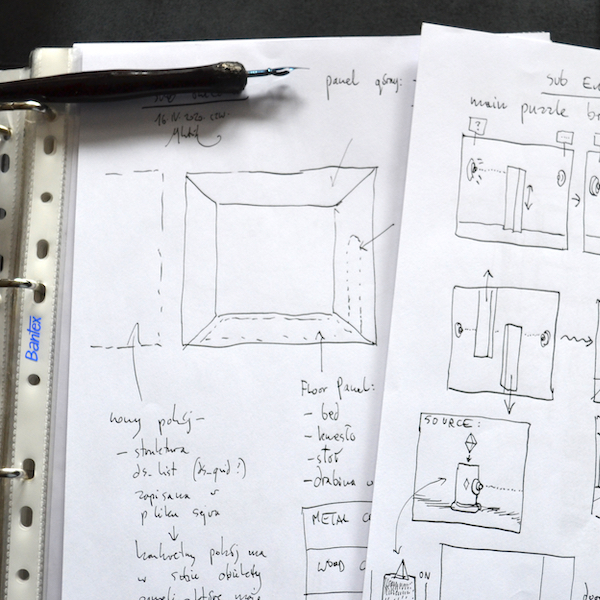 16 IV 2020. czw.
panel górny:
nowy pokój -
- struktura
ds_list (ds_grid?)
zapisana w
pliku
konkretny pokój ma
w sobie obiekty
Floor Panel:
- bed
- krzesło
- stół
- drabina
METAL
WOOD
Bantex
SUB
main puzzle
?
...
SOURCE:
ON